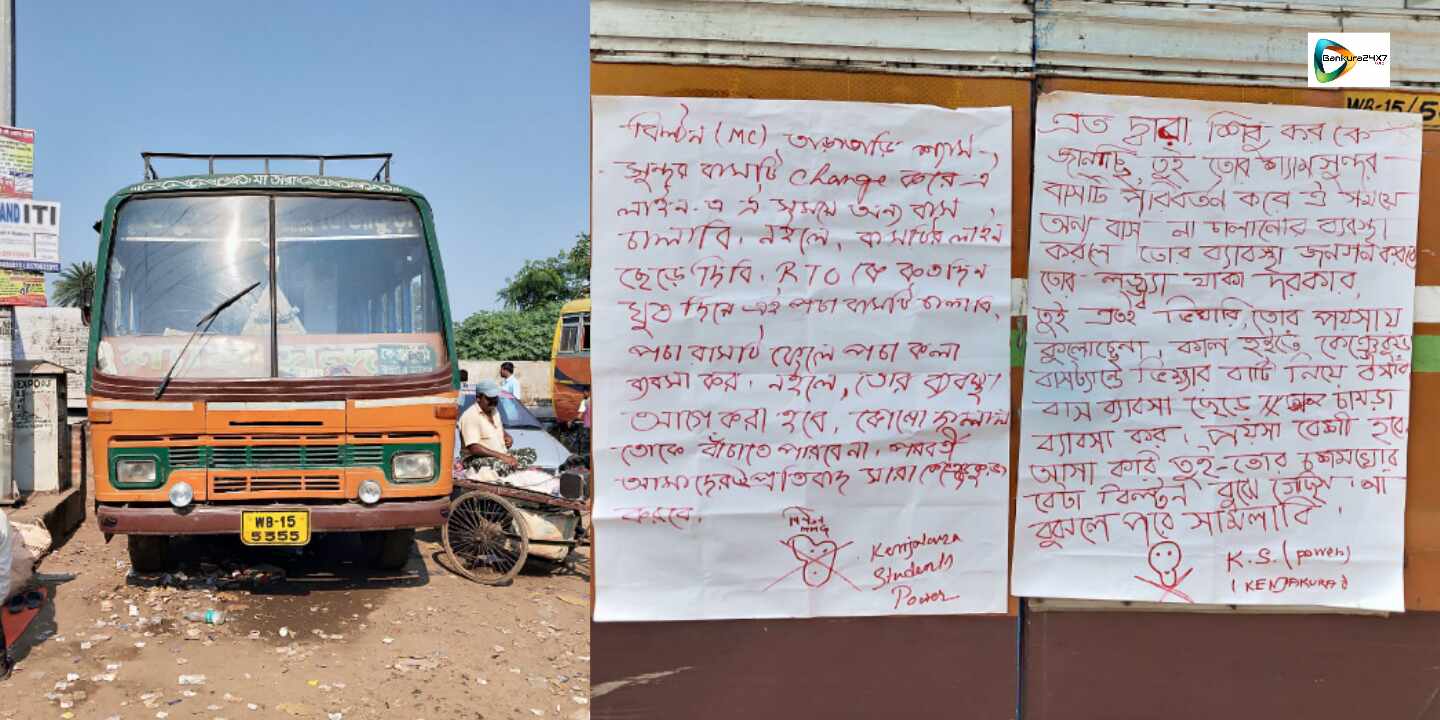 মা তারা
AND ITI
EXPORT
WB-15
5555
Bankura24X7
WB-15/5
বিল্টন (MC) তাড়াতাড়ি শ্যাম-
সুন্দর বাসটি Change করে এ
লাইন-এ ঐ সময়ে অন্য বাস
চালাবি। নইলে, বাসটির লাইন
ছেড়ে দিবি। RTO কে কতদিন
ঘুষ দিয়ে এই পচা বাসটি চালাবি,
পচা বাসটি ফেলে পচা কলা
ব্যবসা কর। নইলে, তোর ব্যবস্থা
আগে করা হবে, কোনো দালাল
তোকে বাঁচাতে পারবেনা। পরবর্তী
আমাদের প্রতিবাদ সারা কেঞ্জাকুড়া
করবে।
Kenjakura
Students
Power
এত দ্বারা শিবু কর কে
জানাচ্ছি, তুই তোর শ্যামসুন্দর
বাসটি পরিবর্তন করে ঐ সময়ে
অন্য বাস না চালানোর ব্যবস্থা
করলে তোর ব্যাবস্থা জনগন করবে
তোর লজ্জা থাকা দরকার,
তুই এতই ভিখারি, তোর পয়সায়
কুলোচ্ছেনা, কাল হইতে কেঞ্জাকুড়া
বাসট্যান্ডে ভিক্ষার বাটি নিয়ে বসবি
বাস ব্যাবসা ছেড়ে চামড়া
ব্যাবসা কর। পয়সা বেশী হবে
আসা করি তুই-তোর চশমখোর
বেটা বিল্টন বুঝে গেছিস। না
বুঝলে পরে সামলাবি।
K.S. (power)
(KENJAKURA)